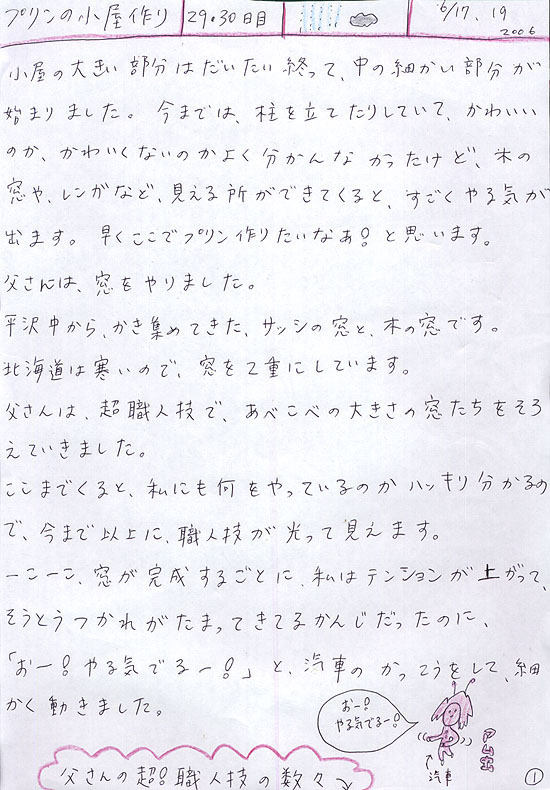 プリンの小屋作り 29.30日目 6/17. 19
2006
小屋の大きい部分はだいたい終って、中の細かい部分が
始まりました。今までは、柱を立てたりしていて、かわいい
のか、かわいくないのかよく分かんなかったけど、木の
窓や、レンガなど、見える所ができてくると、すごくやる気が
出ます。早くここでプリン作りたいなぁ!と思います。
父さんは、窓をやりました。
平沢中から、かき集めてきた、サッシの窓と、木の窓です。
北海道は寒いので、窓を2重にしています。
父さんは、超職人技で、あべこべの大きさの窓たちをそろ
えていきました。
ここまでくると、私にも何をやっているのかハッキリ分かるの
で、今まで以上に、職人技が光って見えます。
一こ一こ、窓が完成するごとに、私はテンションが上がって、
そうとうつかれがたまってきてるかんじだったのに、
「おー!やる気でるー!」と、汽車のかっこうをして、細
かく動きました。
おー!
やる気でるー!
汽車
父さんの超!職人技の数々
①